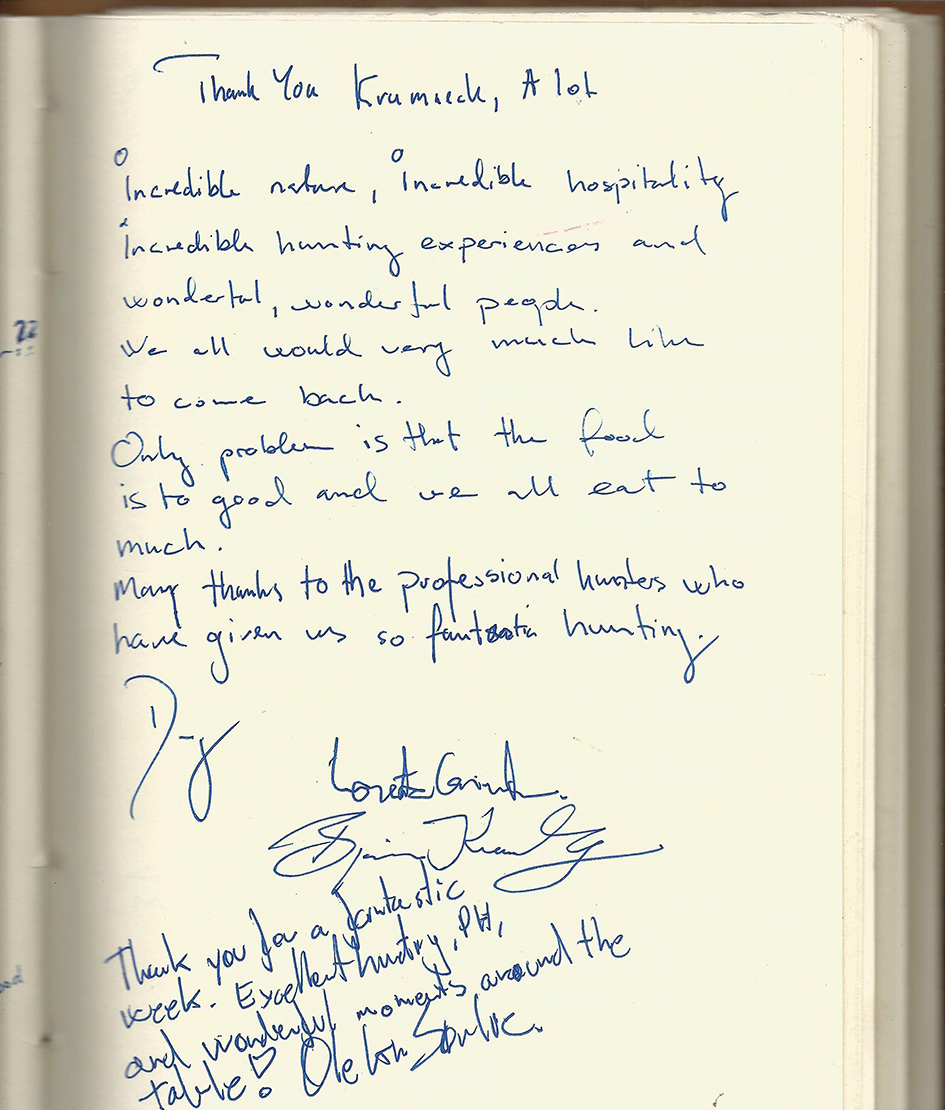 Thank You Krumneck, A lot
Incredible nature, Incredible hospitality
Incredible hunting experiences and
wonderful, wonderful people.
We all would very much like
to come back.
Only problem is that the food
is to good and we all eat to
much.
Many thanks to the professional hunters who
have given us so fantastic hunting.
Thank you for a fantastic
week. Excellent hunting, PH,
and wonderful moments around the
table!
22